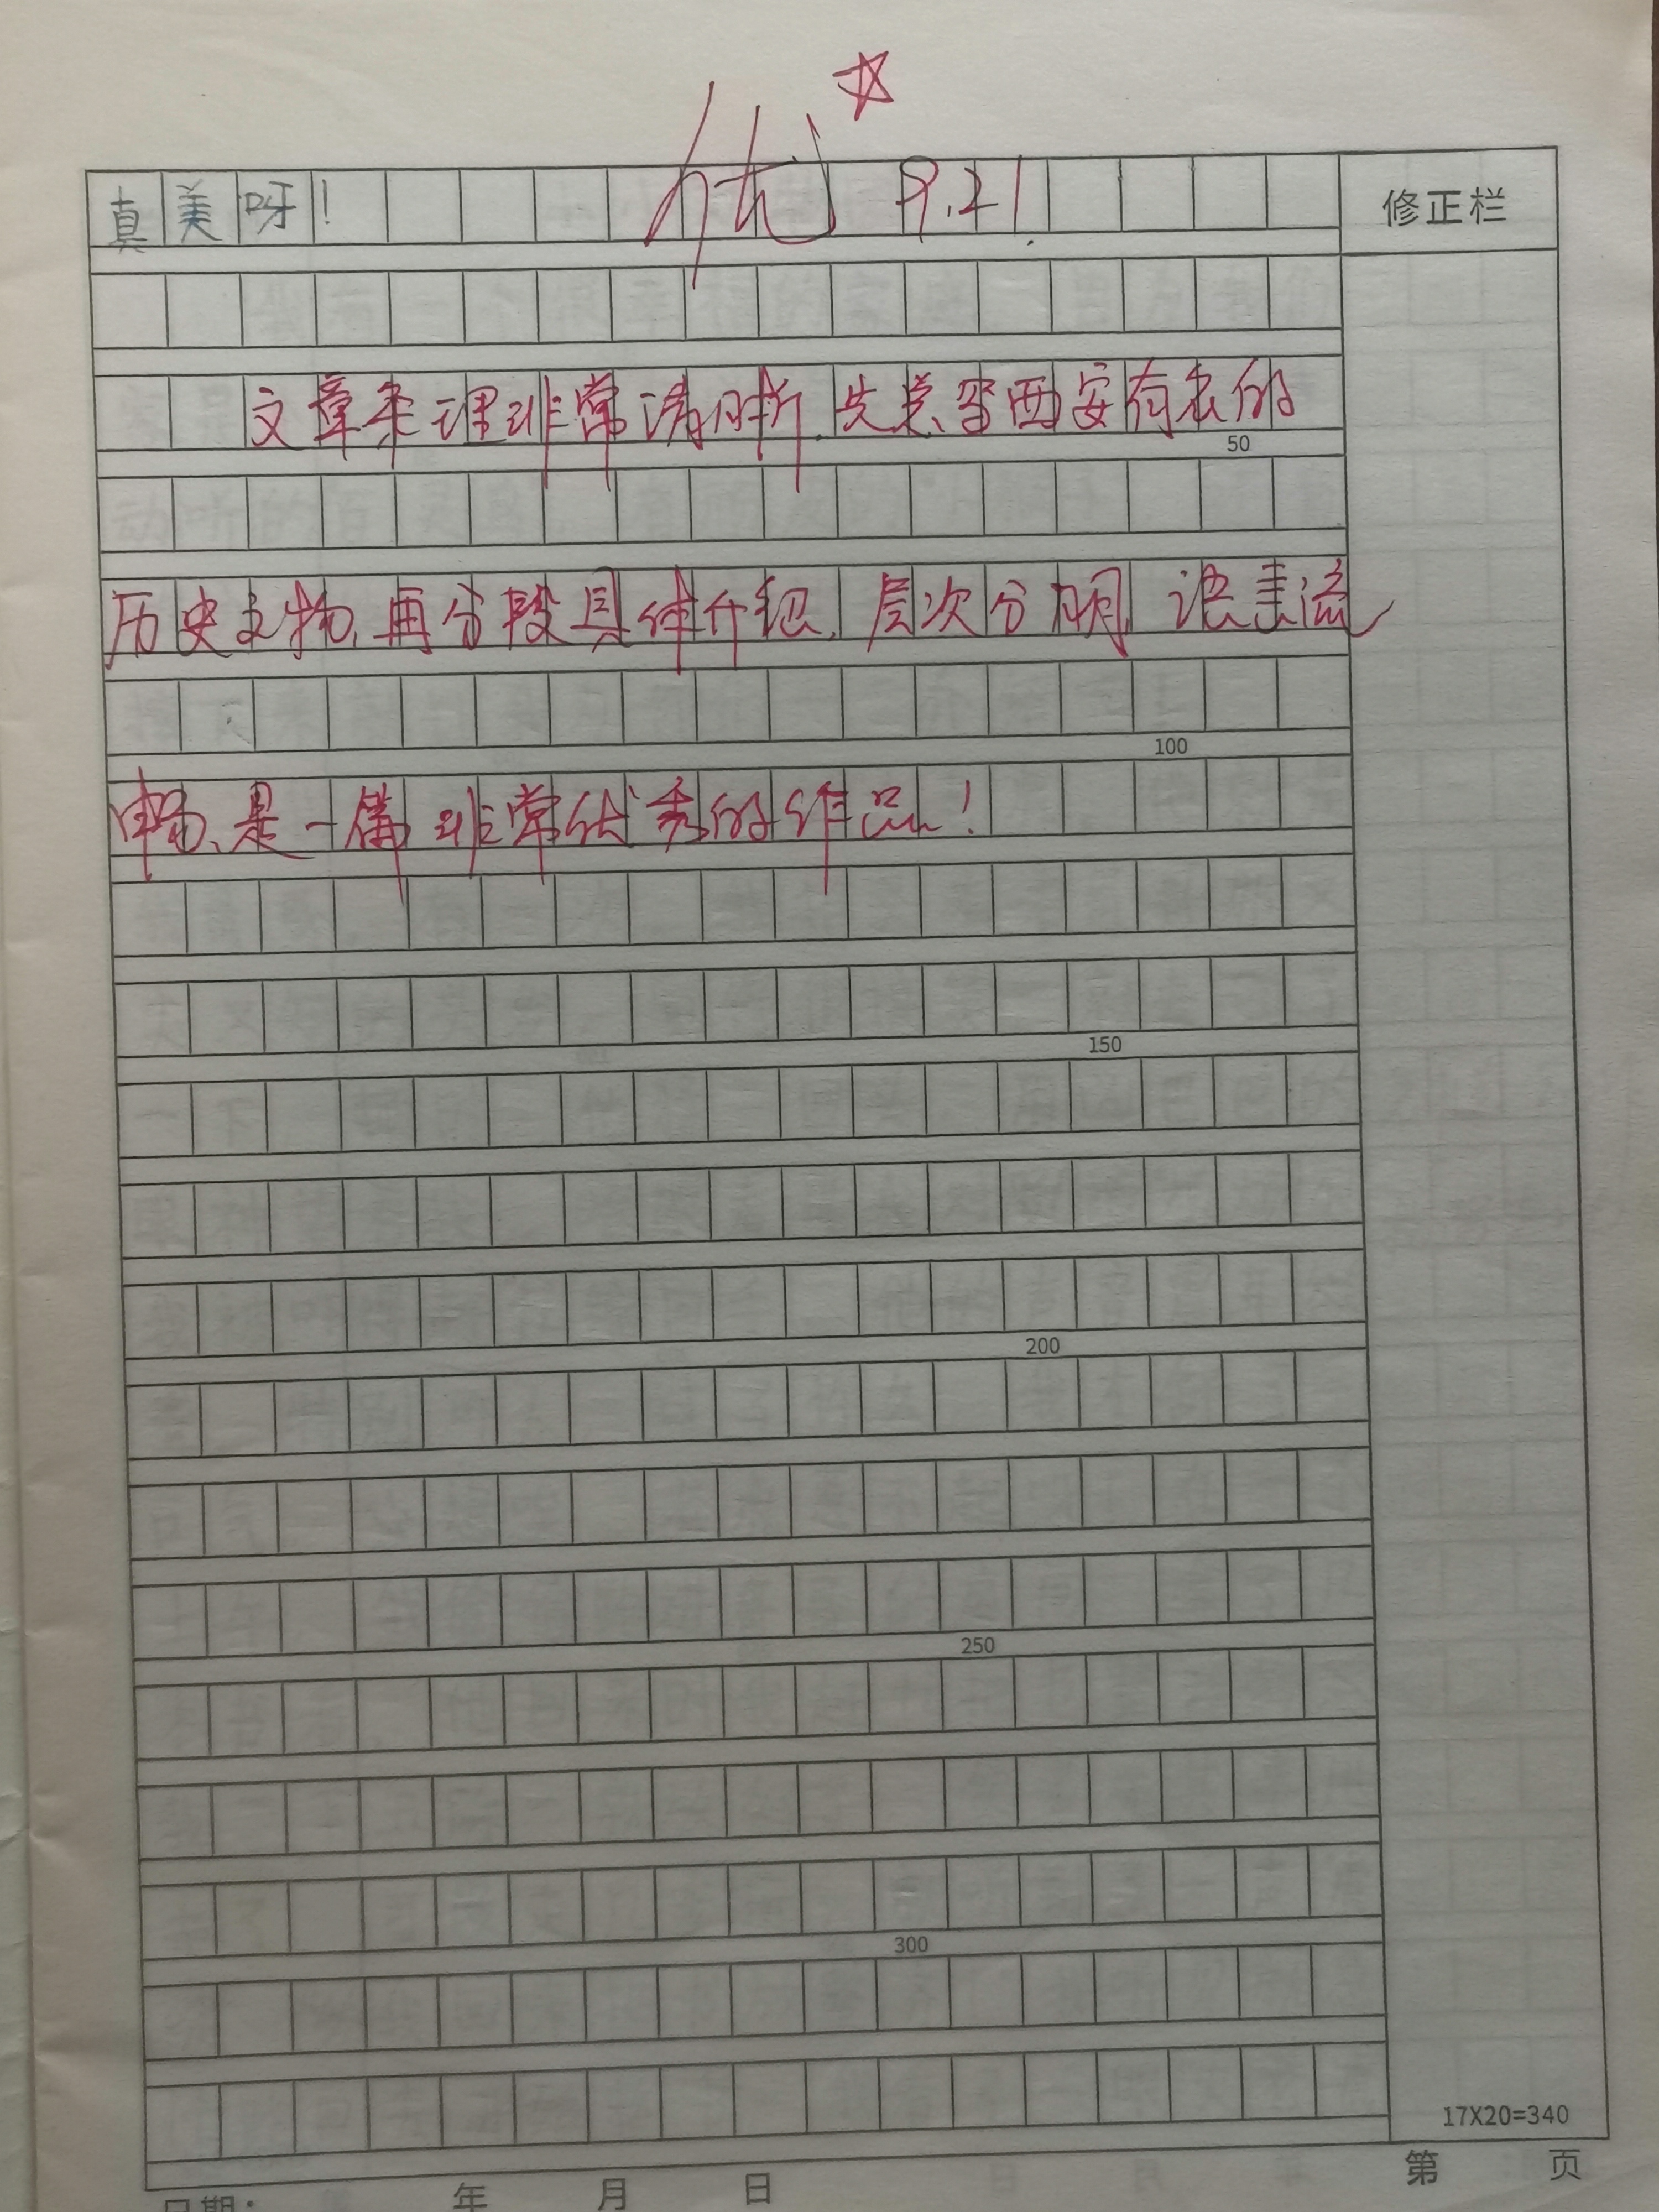 优 ☆ 9.21
真美呀！
修正栏
文章条理非常清晰,先总写西安有名的
50
历史文物,再分段具体介绍,层次分明,语言流
100
畅,是一篇非常优秀的作品！
150
200
250
300
17X20=340
第 页
日期： 年 月 日